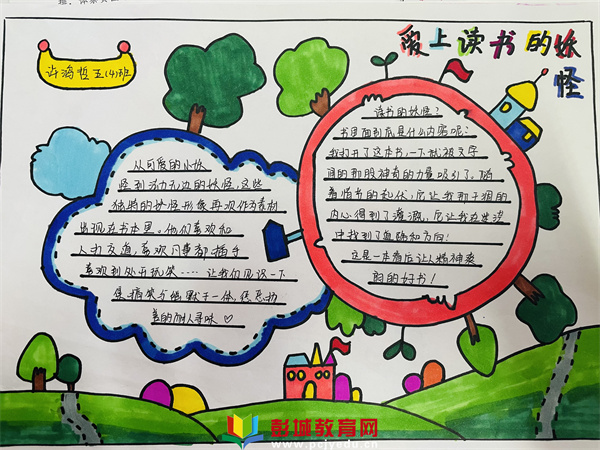 爱上读书的妖怪
许鸿哲 五(4)班
读书的妖怪?
书里面到底是什么内容呢?
我打开了这本书,一下就被文字
间的那股神奇的力量吸引了。随
着情书的起伏,后让我那干涸的
内心得到了灌溉,后让我在迷茫
中找到了道路和方向!
这是一本看后让人精神爽
朗的好书!
从可爱的小妖
怪到法力无边的妖怪,这些
独特的妖怪形象再次作为素材
出现在书本里。他们喜欢和
人打交道,喜欢凡事都插手
喜欢到处开玩笑……让我们见识一下
集搞笑与幽默于一体,
善的耐人寻味
彭城教育网
www.pcjyedu.cn